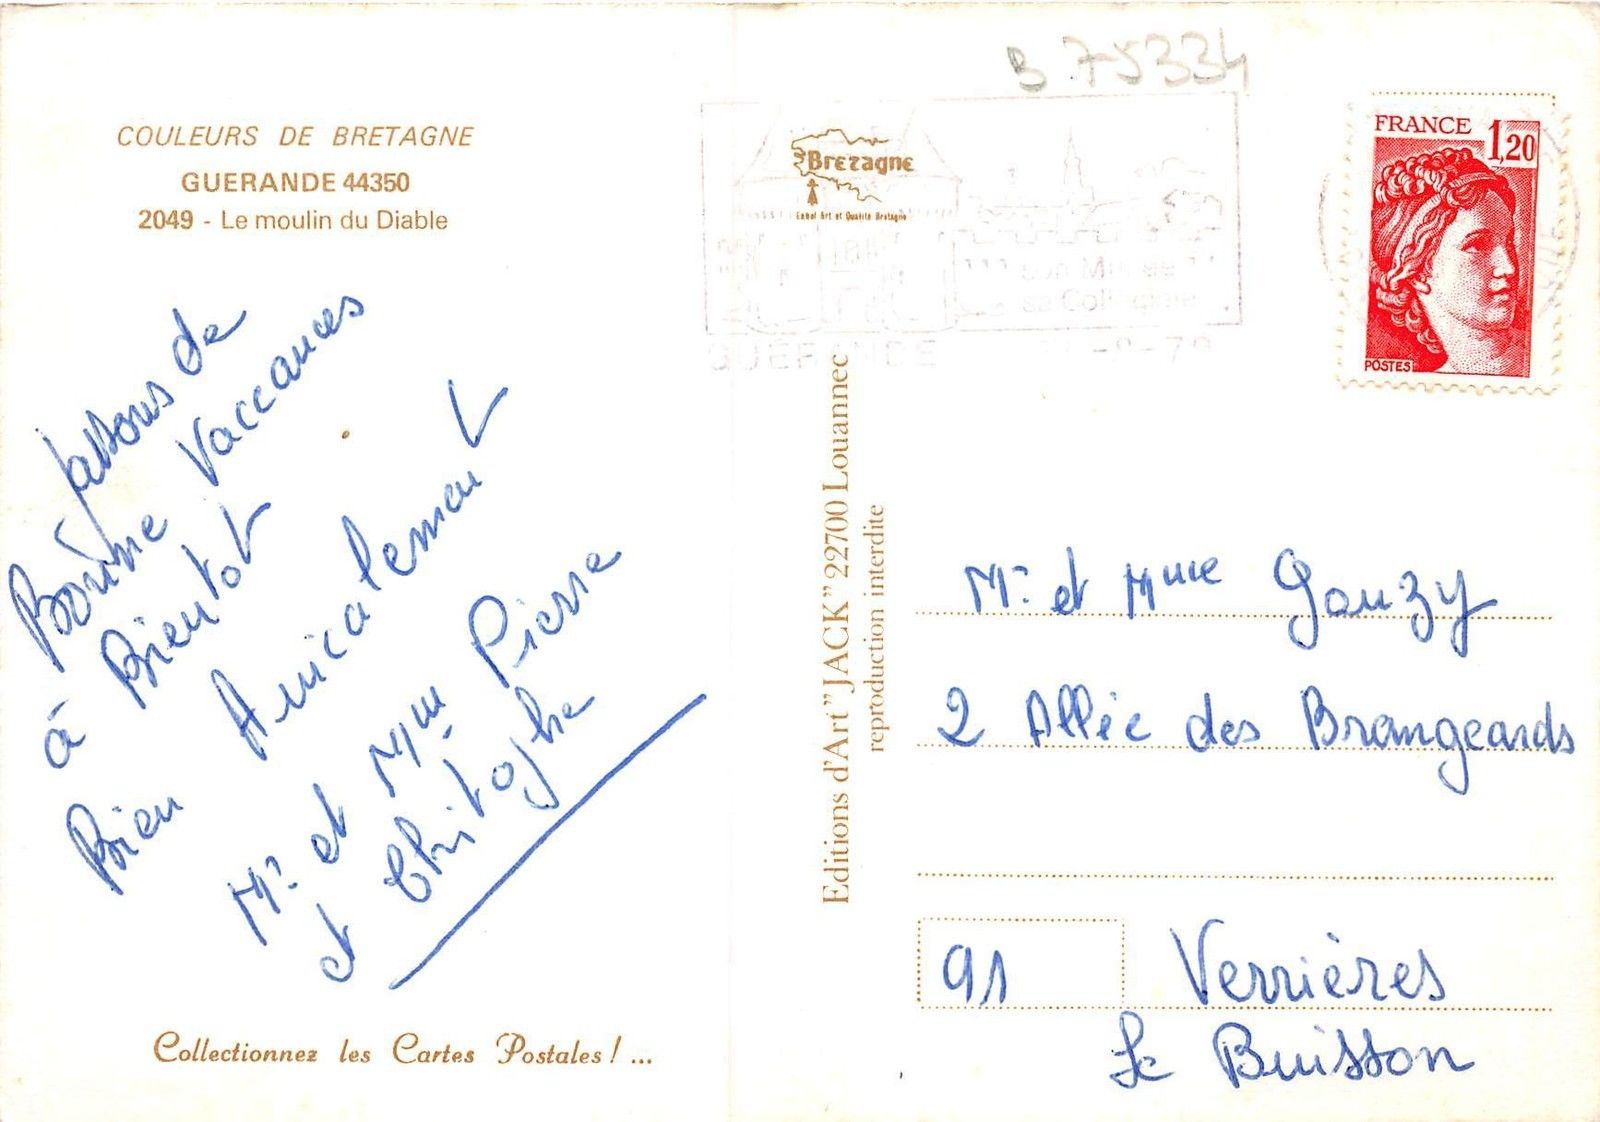 COULEURS DE BRETAGNE
GUERANDE 44350
2049 - Le moulin du Diable
passons de
Bonne Vaccances
à Bientot
Bien Amicalement
Mr et Mme Pierre
et Chritophe
Collectionnez les Cartes Postales ! ...
B 75334
Bretagne
Label Art et Qualité Bretagne
son Musée
sa Collégiale
GUÉRANDE
FRANCE 1,20
POSTES
Editions d'Art "JACK" 22700 Louannec
reproduction interdite
Mr et Mme Gouzy
2 Allée des Brangeards
91 Verrières
Le Buisson